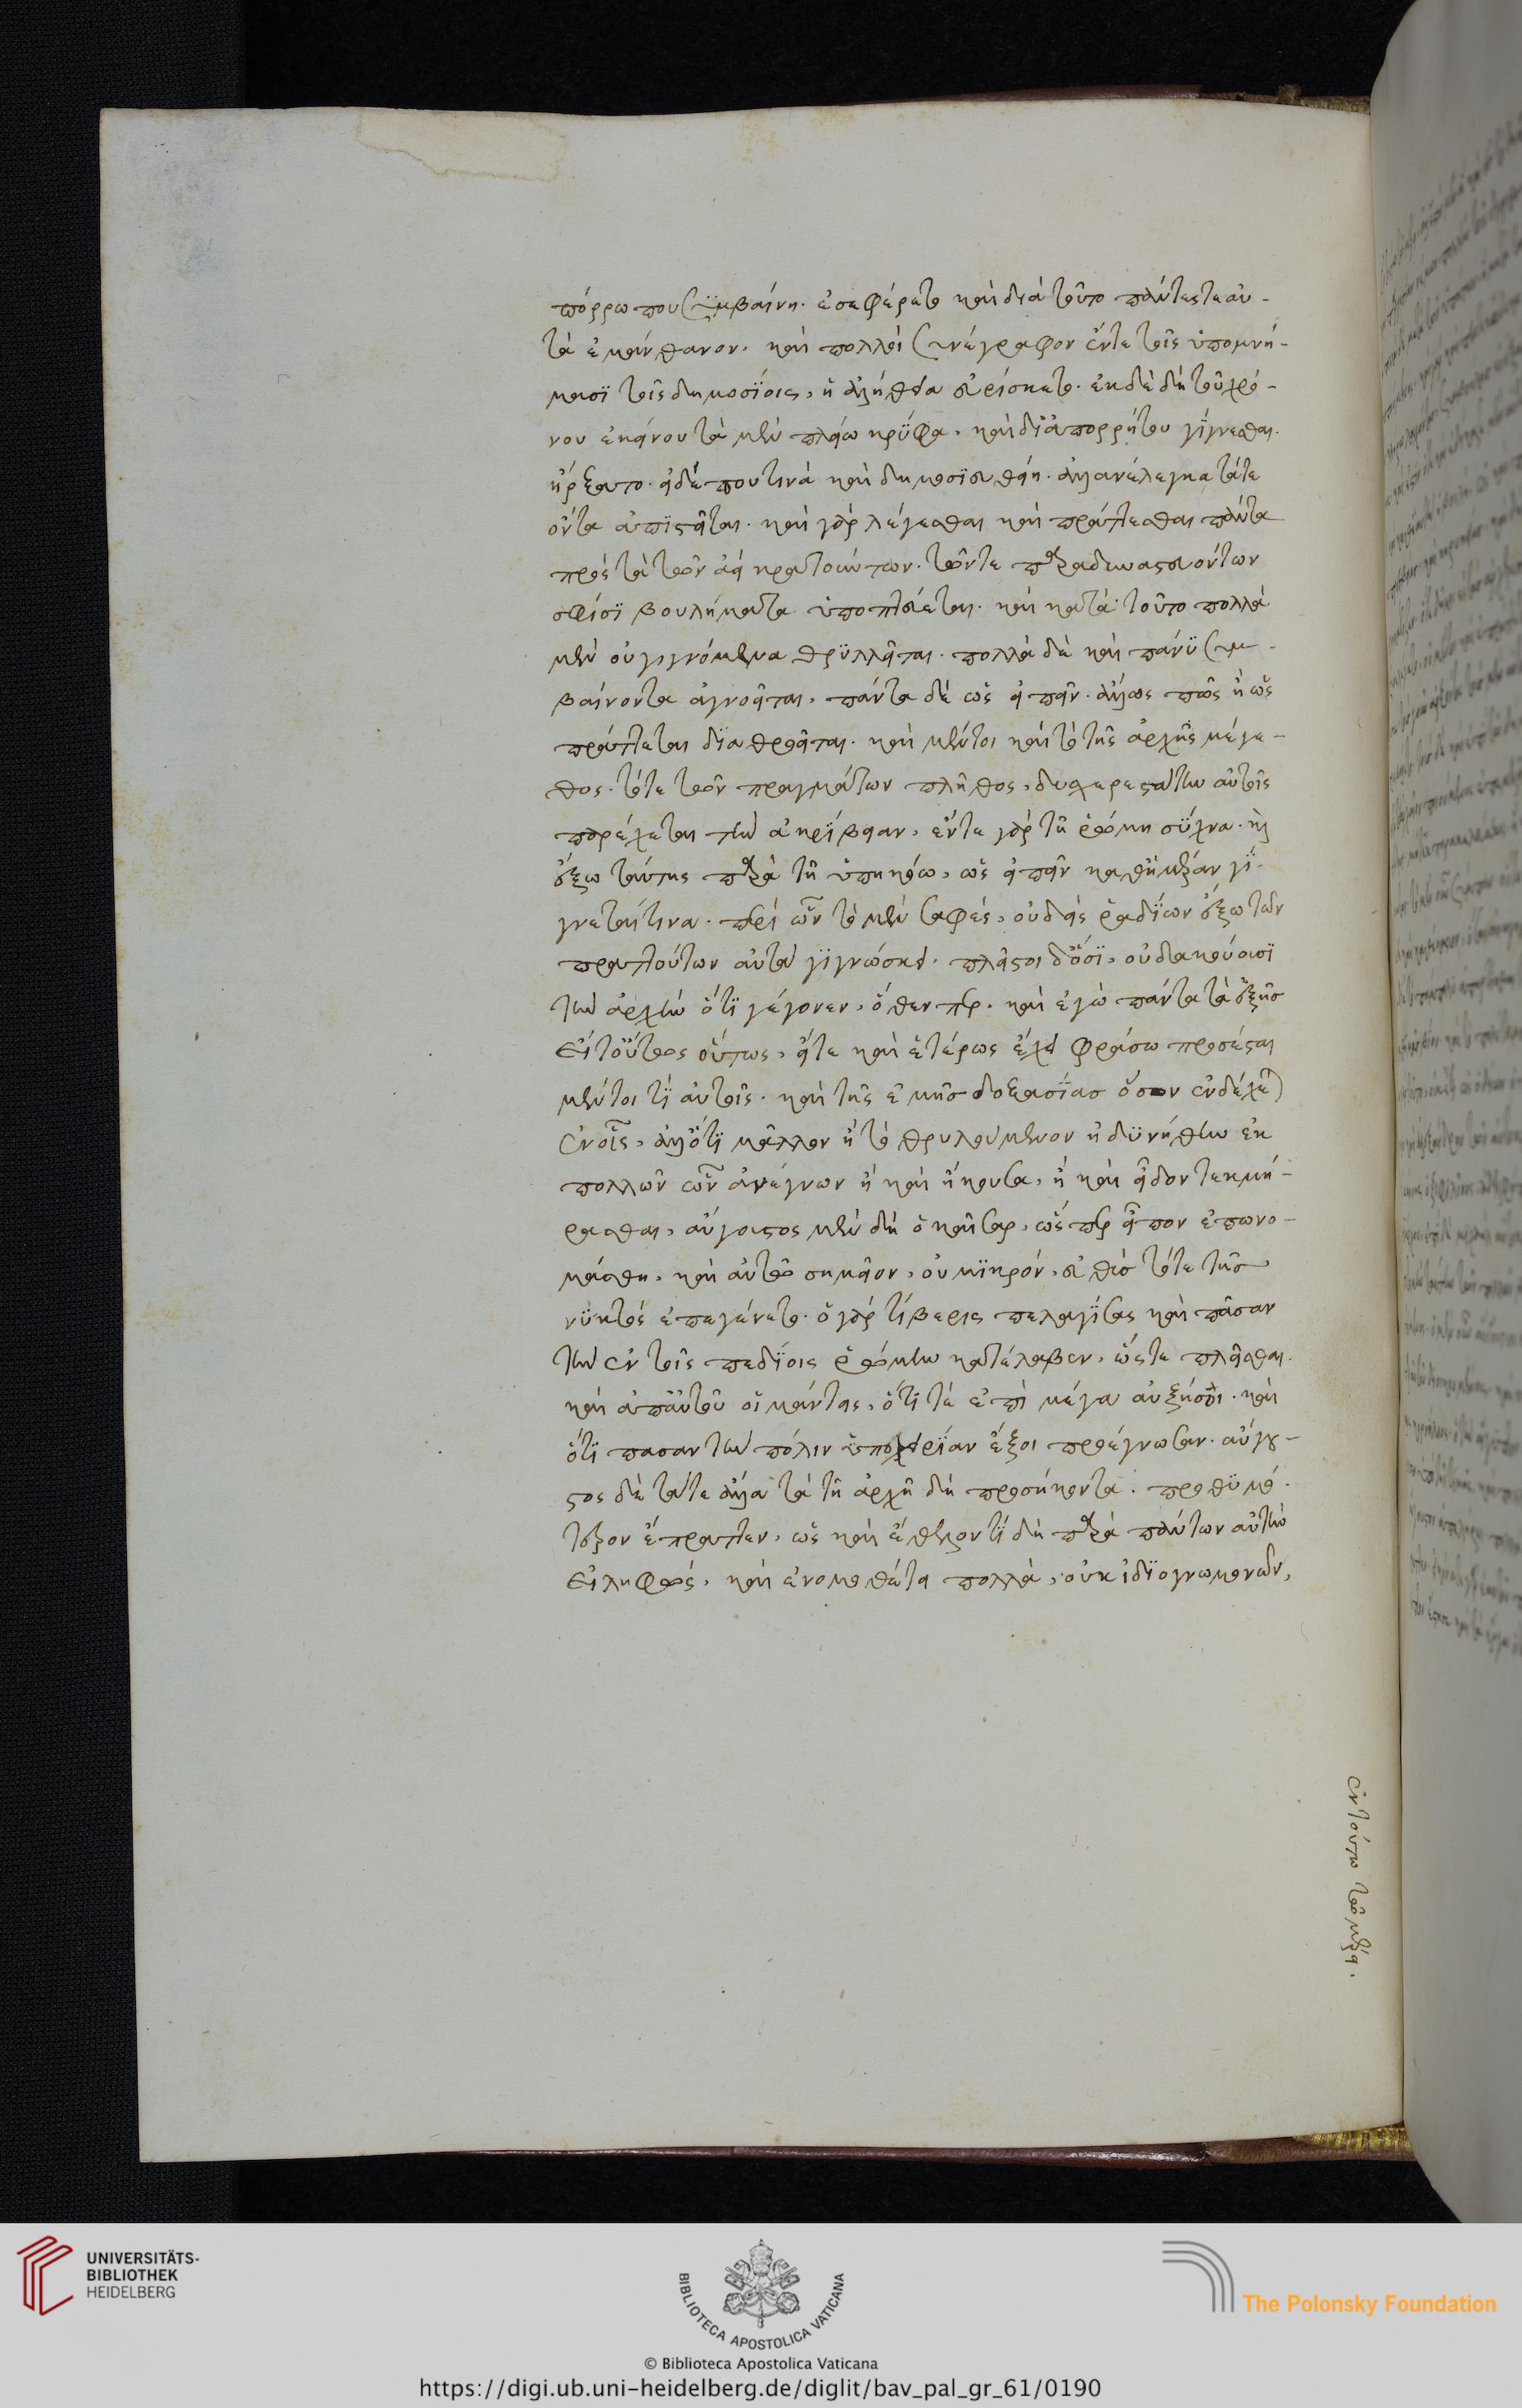 πόρρω που συμβαίνη. ἐσεφέρετο καὶ διὰ τοῦτο πάντες τε αὐ-
τὰ ἐμάνθανον. καὶ πολλοὶ συνέγραφον ἔν τε τοῖς ὑπομνή-
μασϊ τοῖς δημοσϊοις, ἡ ἀλήθεια εὑρίσκετο. ἐκ δὲ δὴ τοῦ χρό-
νου ἐκείνου τὰ μὲν πλείω κρύφα. καὶ δι' ἀπορρήτου γίγνεσθαι.
ἤρξατο. εἰ δέ που τινὰ καὶ δημοσϊευθείη. ἀλλ' ἀνέλεγκτά τε
ὄντα ἀπιστεῖται. καὶ γὰρ λέγεσθαι καὶ πράττεσθαι πάντα
πρὸς τὰ τῶν ἀεὶ κρατούντων. τῶν τε παραδυναστευόντων
σφίσϊ βουλήματα ὑποπτεύεται. καὶ κατὰ τοῦτο πολλὰ
μὲν οὐ γιγνόμενα θρϋλλεῖται. πολλὰ δὲ καὶ πάνϋ συμ-
βαίνοντα ἀγνοεῖται. πάντα δὲ ὡς εἰπεῖν. ἄλλως πως ἢ ὡς
πράττεται διαθροεῖται. καὶ μέντοι καὶ τὸ τῆς ἀρχῆς μέγε-
θος. τό τε τῶν πραγμάτων πλῆθος, δυσχερεστάτην αὐτοῖς
παρέχεται τὴν ἀκρίβειαν. ἔν τε γὰρ τῆ ῥώμη σϋχνα. καὶ
ἔξω ταύτης παρὰ τῆ ὑπηκόω, ὡς εἰπεῖν καθ' ἡμέραν γί-
γνεταί τινα. περὶ ὧν τὸ μὲν σαφές, οὐδεὶς ῥαδίων ἔξω τῶν
πραττόντων αὐτὰ γιγνώσκει. πλεῖστοι δ' ὅσϊ, οὐδ' ἀκούουσϊ
τὴν ἀρχὴν ὅτϊ γέγονεν. ὅθενπερ. καὶ ἐγὼ πάντα τὰ ἑξῆς
εἴτ' ὄντως οὕτως, εἴτε καὶ ἑτέρως ἔχει φράσω προσέσται
μέντοι τϊ αὐτοῖς. καὶ τῆς ἐμῆς δοξασίας ὅσον ἐνδέχεται
ἐν οἷς, ἄλλο τϊ μᾶλλον ἢ τὸ θρυλούμενον ἠδϋνήθην ἐκ
πολλῶν ὧν ἀνέγνων ἢ καὶ ἤκουσα. ἢ καὶ εἶδον τεκμή-
ρασθαι. αὔγουστος μὲν δὴ ὁ καῖσαρ, ὥσπερ εἶπον ἐπωνο-
μάσθη. καὶ αὐτῶ σημεῖον, οὐ μϊκρόν, εὐθὺς τότε τῆς
νϋκτὸς ἐπεγένετο. ὁ γὰρ τίβερις πελαγίσας καὶ πᾶσαν
τὴν ἐν τοῖς πεδίοις ῥώμην κατέλαβεν, ὥστε πλεῖσθαι.
καὶ ἀπ' αὐτοῦ οἱ μάντεις, ὅτϊ τὲ ἐπὶ μέγα αὐξήσοι. καὶ
ὅτϊ πασαν τὴν πόλιν ὑποχειρίαν ἕξοι προέγνωσαν. αὔγου-
στος δὲ τά τε ἄλλα τὰ τῆ ἀρχῆ δὴ προσήκοντα. προθϋμό-
τερον ἔπραττεν, ὡς καὶ ἐθελοντϊ δὴ παρὰ πάντων αὐτὴν
εἰληφώς. καὶ ἐνομοθέτει πολλὰ, οὐκ ἰδϊογνωμονῶν,
ἐν τούτω τῶ μέρει.
UNIVERSITÄTS-
BIBLIOTHEK
HEIDELBERG
BIBLIOTECA APOSTOLICA VATICANA
The Polonsky Foundation
© Biblioteca Apostolica Vaticana
https://digi.ub.uni-heidelberg.de/diglit/bav_pal_gr_61/0190